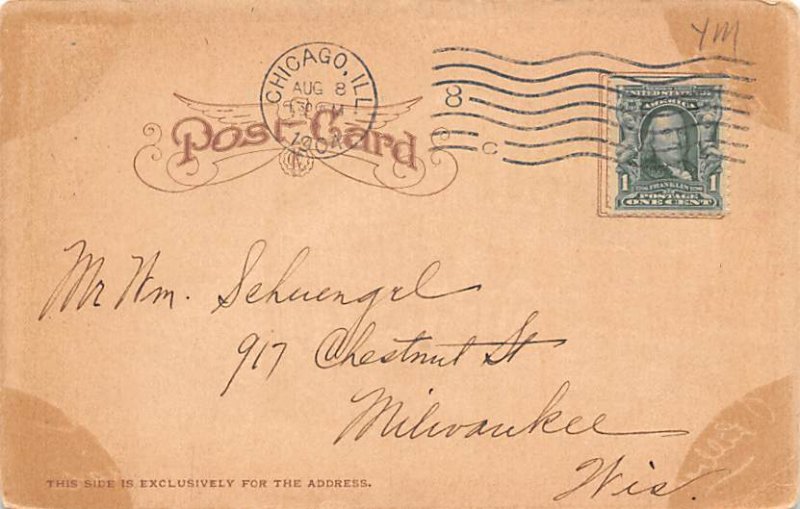 YM
CHICAGO, ILL
AUG 8
8
C
Post Card
UNITED STATES
AMERICA
1 FRANKLIN 1
POSTAGE
ONE CENT
Mr Wm. Schuengel
917 Chestnut St
Milwaukee
Wis.
THIS SIDE IS EXCLUSIVELY FOR THE ADDRESS.